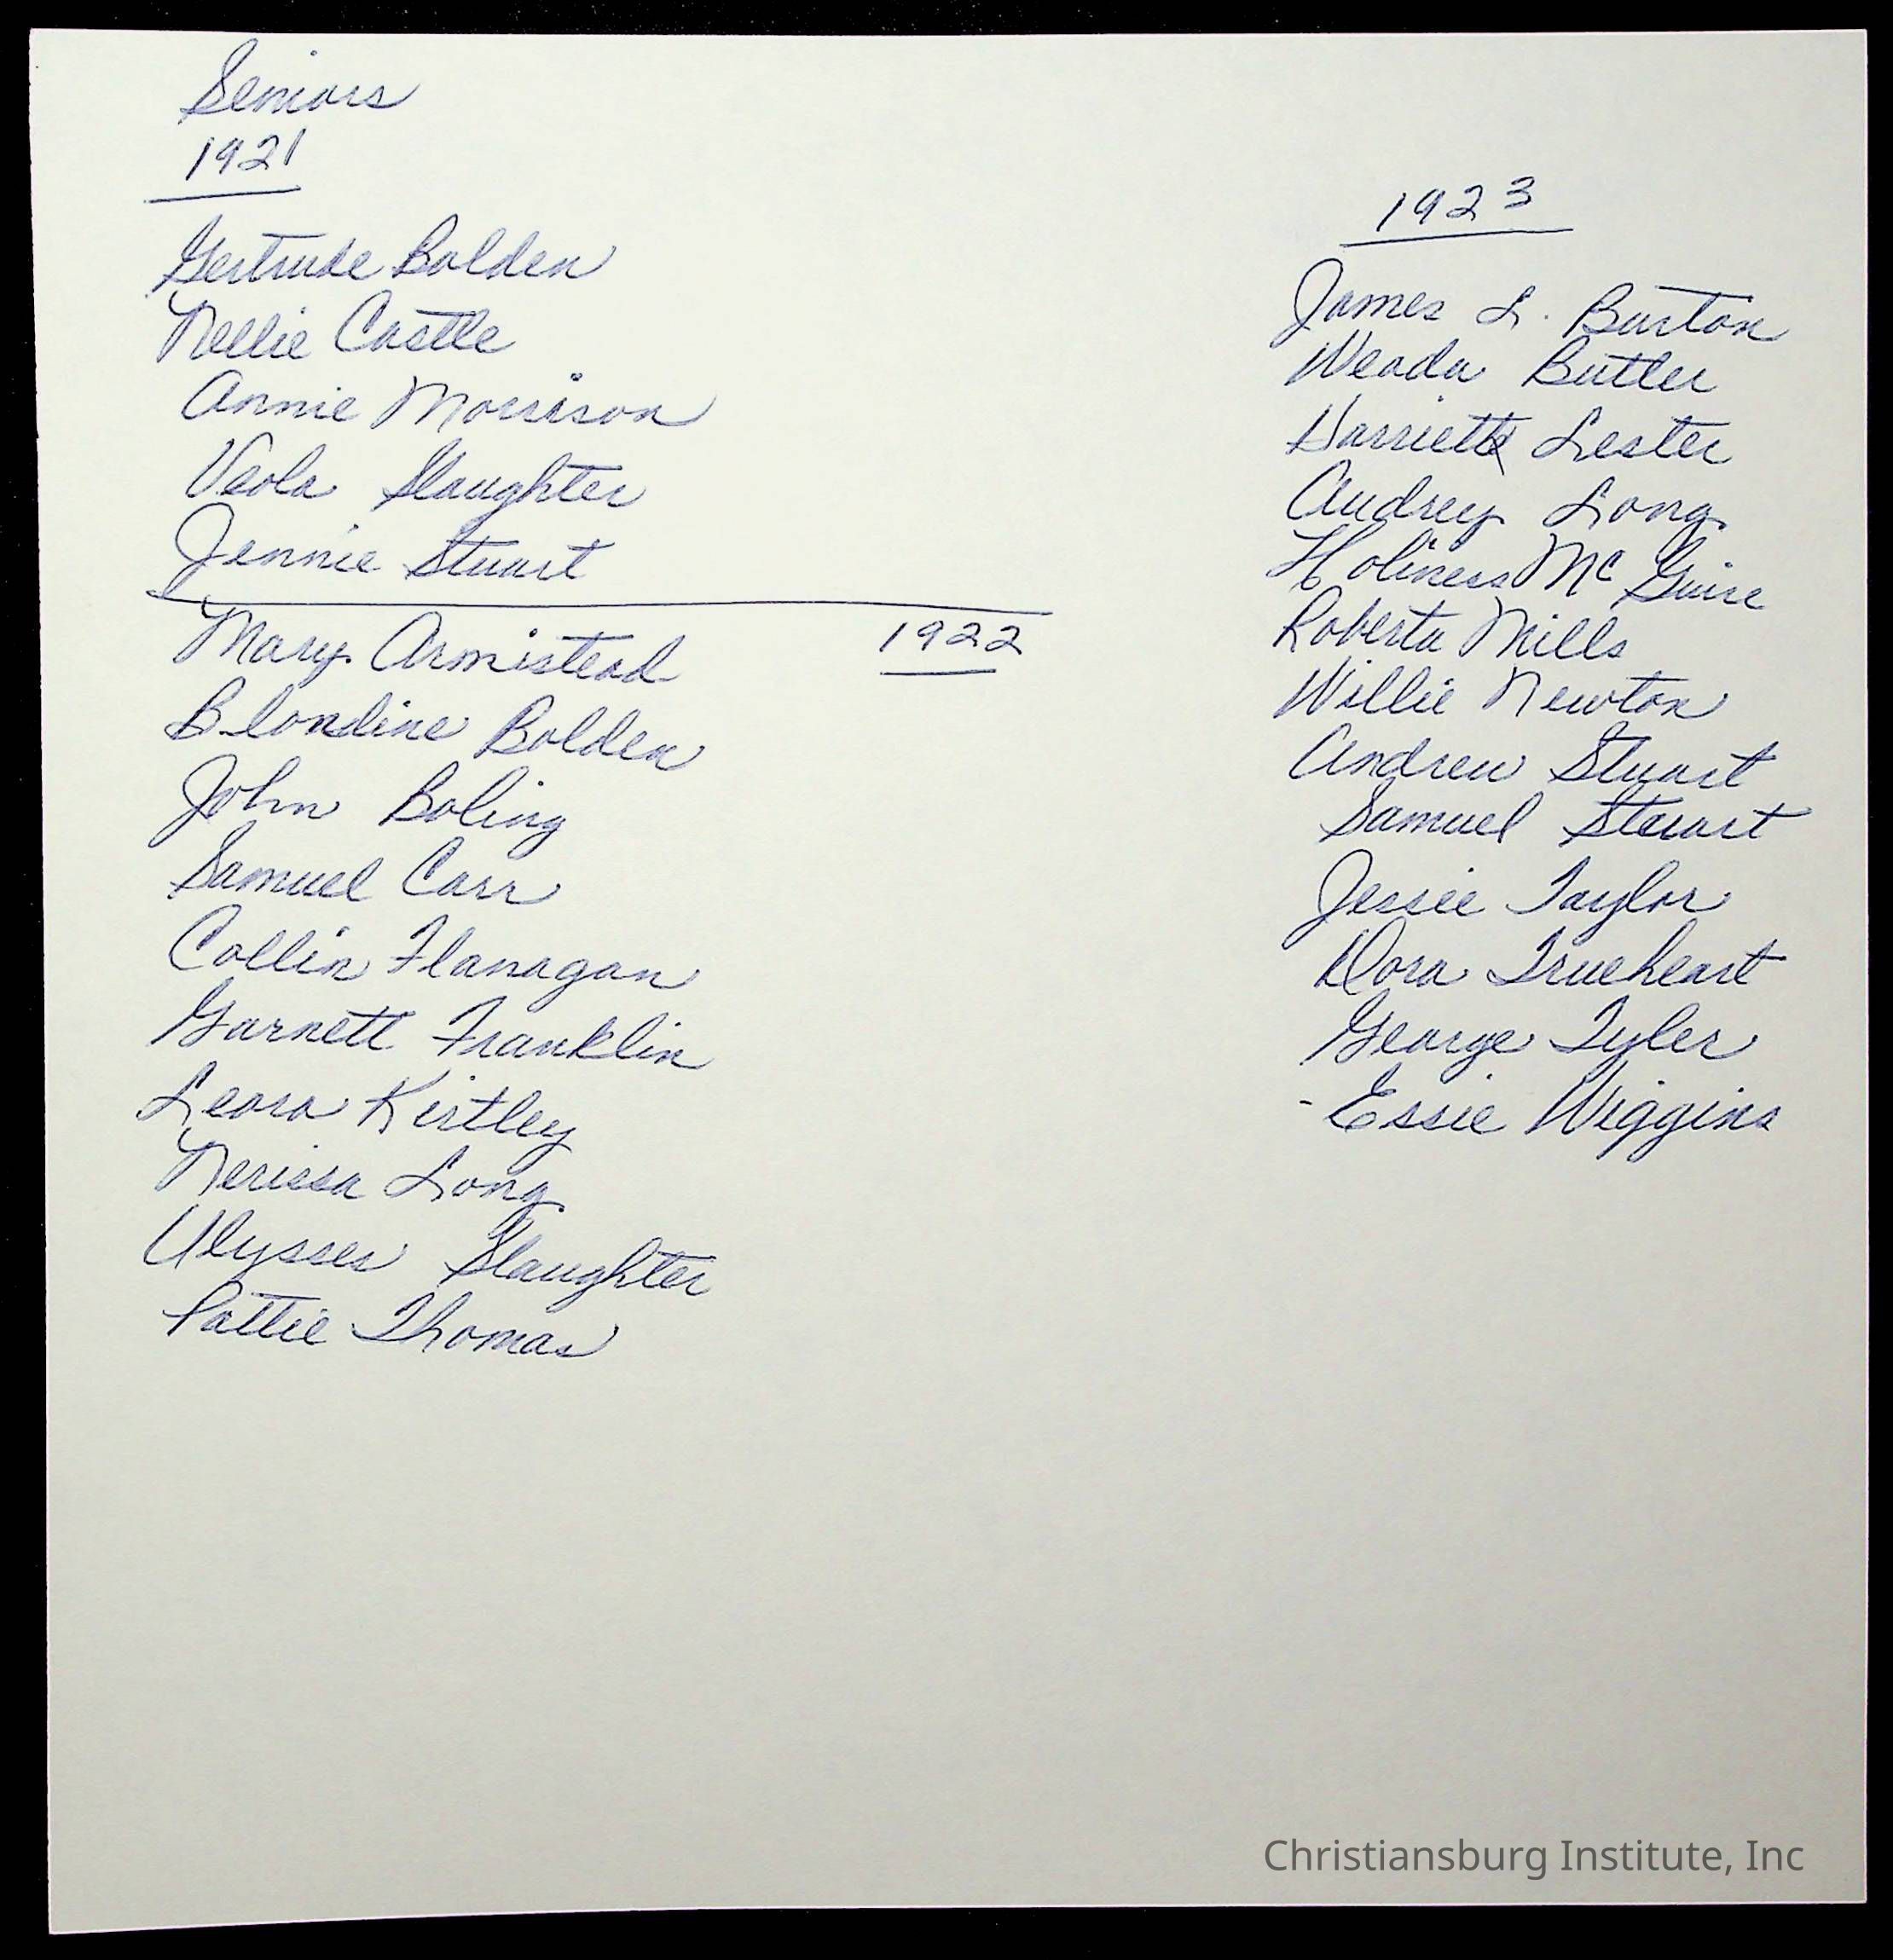 Seniors
1921
Gertrude Bolden
Nellie Castle
Annie Morrison
Veola Slaughter
Jennie Stuart
1922
Mary Armistead
Blondine Bolden
John Boling
Samuel Carr
Collin Flanagan
Garnett Franklin
Leora Kirtley
Nerissa Long
Ulysses Slaughter
Pattie Thomas
1923
James L. Burton
Weada Butler
Harriette Lester
Audrey Long
Holiness Mc Guire
Roberta Mills
Willie Newton
Andrew Stuart
Samuel Stuart
Jessie Taylor
Dora Trueheart
George Tyler
- Essie Wiggins
Christiansburg Institute, Inc